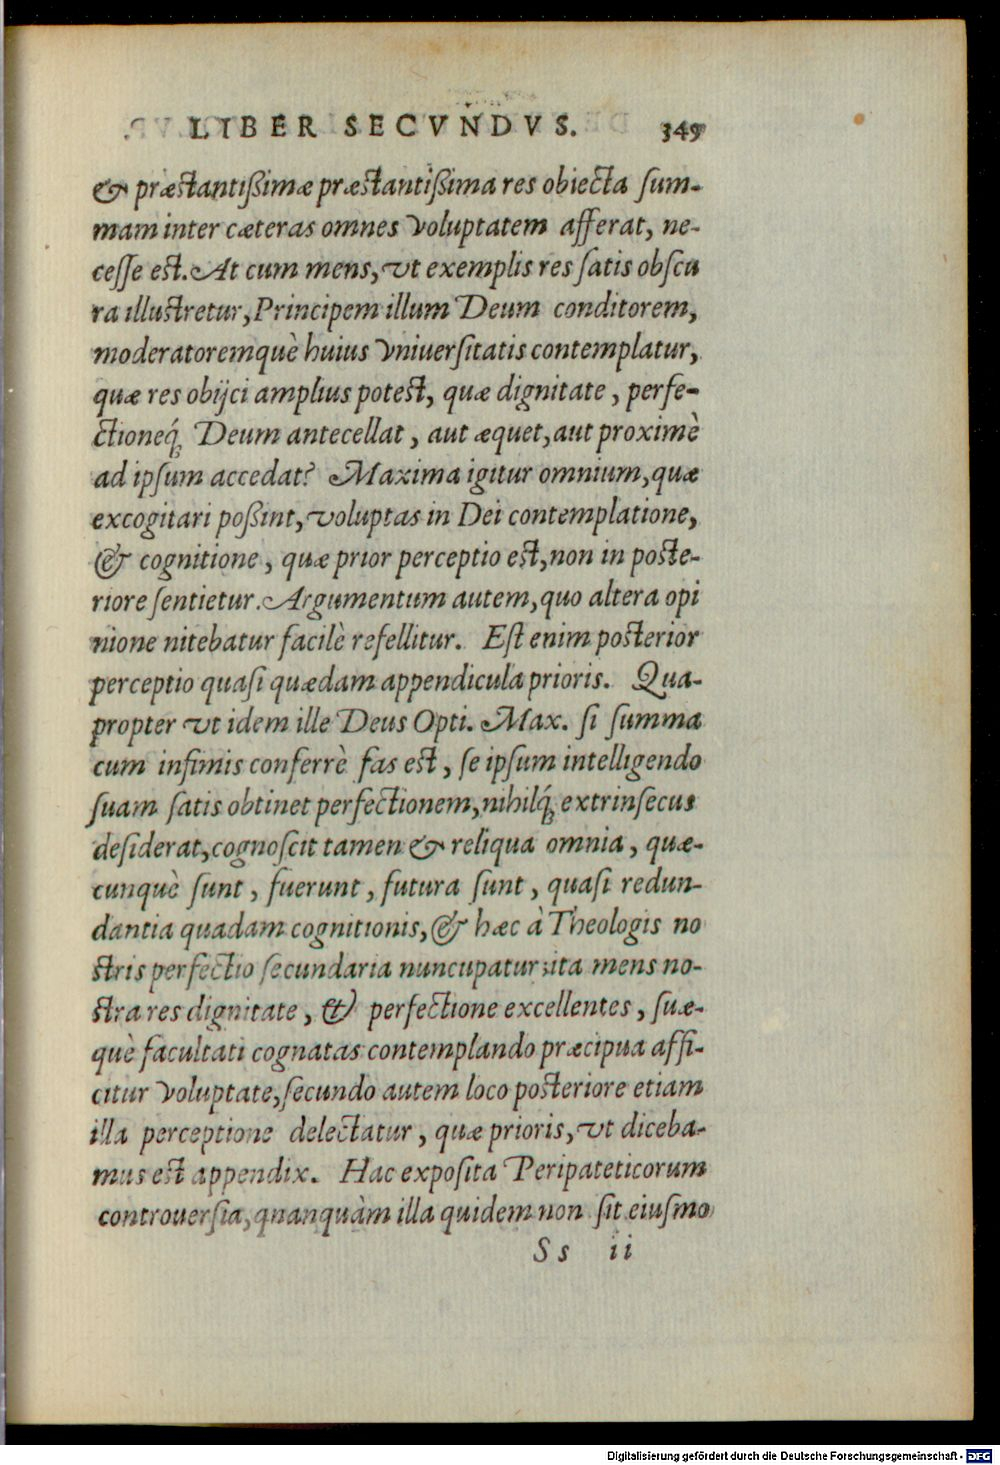 LIBER SECVNDVS. 349
& præstantißimæ præstantißima res obiecta sum-
mam inter cæteras omnes voluptatem afferat, ne-
cesse est. At cum mens, vt exemplis res satis obscu
ra illustretur, Principem illum Deum conditorem,
moderatoremquè huius vniuersitatis contemplatur,
quæ res obijci amplius potest, quæ dignitate, perfe-
ctioneq́; Deum antecellat, aut æquet, aut proximè
ad ipsum accedat? Maxima igitur omnium, quæ
excogitari poßint, voluptas in Dei contemplatione,
& cognitione, quæ prior perceptio est, non in poste-
riore sentietur. Argumentum autem, quo altera opi
nione nitebatur facilè refellitur. Est enim posterior
perceptio quasi quædam appendicula prioris. Qua-
propter vt idem ille Deus Opti. Max. si summa
cum infimis conferrè fas est, se ipsum intelligendo
suam satis obtinet perfectionem, nihilq́; extrinsecus
desiderat, cognoscit tamen & reliqua omnia, quæ-
cunquè sunt, fuerunt, futura sunt, quasi redun-
dantia quadam cognitionis, & hæc à Theologis no
stris perfectio secundaria nuncupatur: ita mens no-
stra res dignitate, & perfectione excellentes, suæ-
què facultati cognatas contemplando præcipua affi-
citur voluptate, secundo autem loco posteriore etiam
illa perceptione delectatur, quæ prioris, vt diceba-
mus est appendix. Hac exposita Peripateticorum
controuersia, quanquàm illa quidem non sit eiusmo
Ss ii
Digitalisierung gefördert durch die Deutsche Forschungsgemeinschaft - DFG